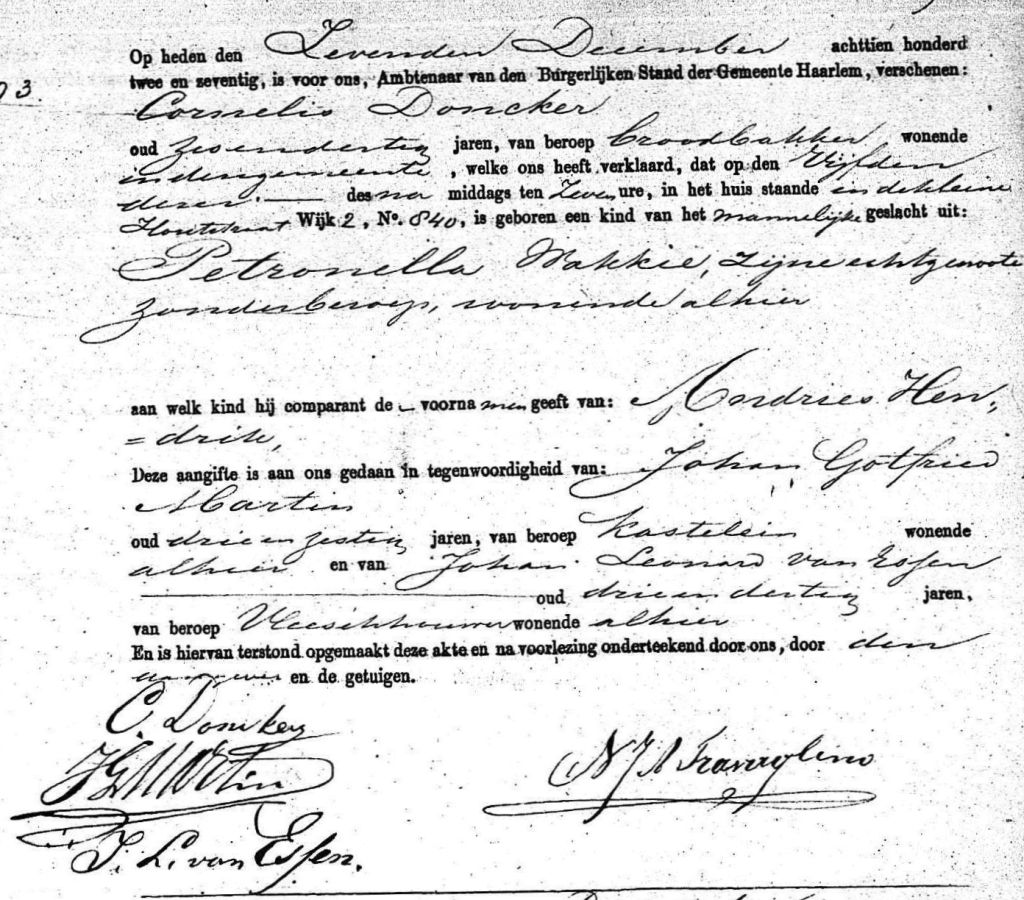 Op heden den Zevenden December achttien honderd
twee en zeventig, is voor ons, Ambtenaar van den Burgerlijken Stand der Gemeente Haarlem, verschenen:
93.
Cornelis Doncker
oud zesendertig jaren, van beroep broodbakker wonende
in deze gemeente, welke ons heeft verklaard, dat op den Vijfden
dezer. — des na middags ten zeven ure, in het huis staande in de kleine
Houtstraat Wijk 2, No. 840, is geboren een kind van het mannelijke geslacht uit:
Petronella Makkie, zijne echtgenoote
zonder beroep, wonende alhier
aan welk kind hij comparant de — voornamen geeft van: Andries Hen,
= drik,
Deze aangifte is aan ons gedaan in tegenwoordigheid van: Johan Gotfried
Martin
oud drie en zestig jaren, van beroep kastelein wonende
alhier en van Johan Leonard van Essen
oud drieendertig jaren,
van beroep Vleeschhouwer wonende alhier
En is hiervan terstond opgemaakt deze akte en na voorlezing onderteekend door ons, door den
aangever en de getuigen.
C. Doncker
JG Martin
N J A Travaglino
J. L. van Essen.